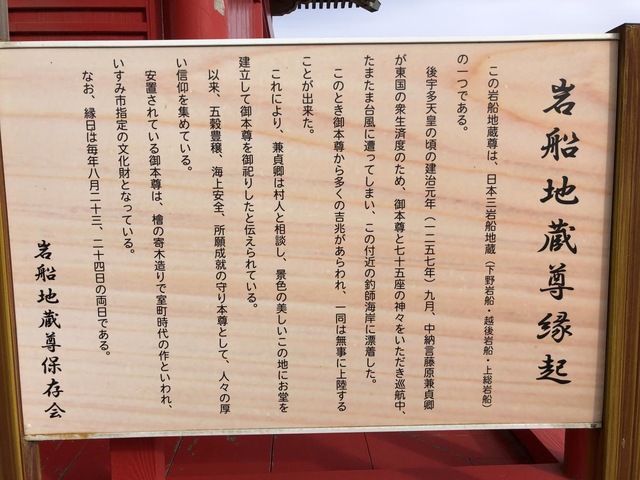 岩船地蔵尊縁起
この岩船地蔵尊は、日本三岩船地蔵（下野岩船・越後岩船・上総岩船）
の一つである。
後宇多天皇の頃の建治元年（一二五七年）九月、中納言藤原兼貞卿
が東国の衆生済度のため、御本尊と七十五座の神々をいただき巡航中、
たまたま台風に遭ってしまい、この付近の釣師海岸に漂着した。
このとき御本尊から多くの吉兆があらわれ、一同は無事に上陸する
ことが出来た。
これにより、兼貞卿は村人と相談し、景色の美しいこの地にお堂を
建立して御本尊を御祀りしたと伝えられている。
以来、五穀豊穣、海上安全、所願成就の守り本尊として、人々の厚
い信仰を集めている。
安置されている御本尊は、檜の寄木造りで室町時代の作といわれ、
いすみ市指定の文化財となっている。
なお、縁日は毎年八月二十三、二十四日の両日である。
岩船地蔵尊保存会